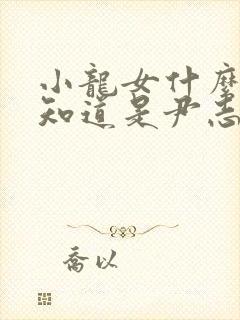 小龍女什麼
知道是尹志
喬以